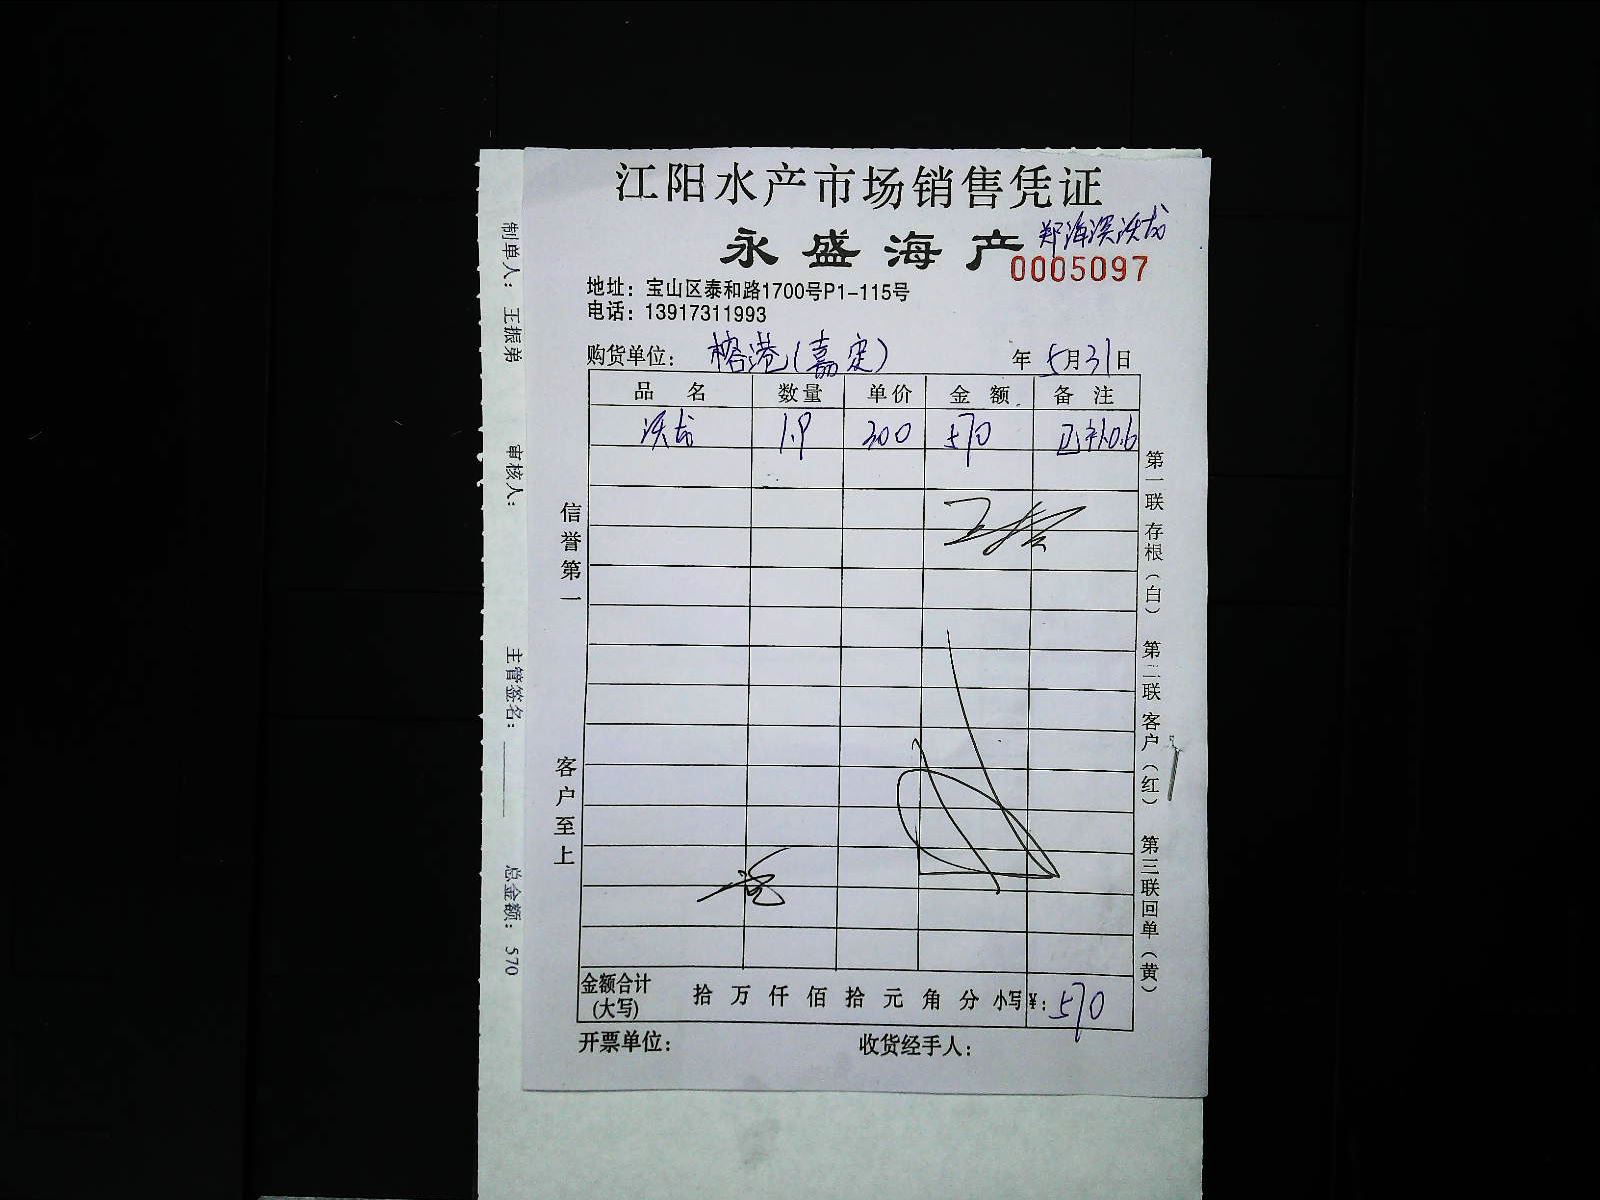 江阳水产市场销售凭证
永盛海产
0005097
地址：宝山区泰和路1700号P1-115号
电话：13917311993
购货单位：榕港(嘉定) 年 5月31日
品名 数量 单价 金额 备注
沃龙 1.9 300 570 已补0.6
信誉第一
客户至上
第一联 存根（白） 第二联 客户（红） 第三联 回单（黄）
金额合计(大写) 拾 万 仟 佰 拾 元 角 分 小写¥：570
开票单位： 收货经手人：
制单人：王振弟 审核人： 主管签名：________ 总金额：570